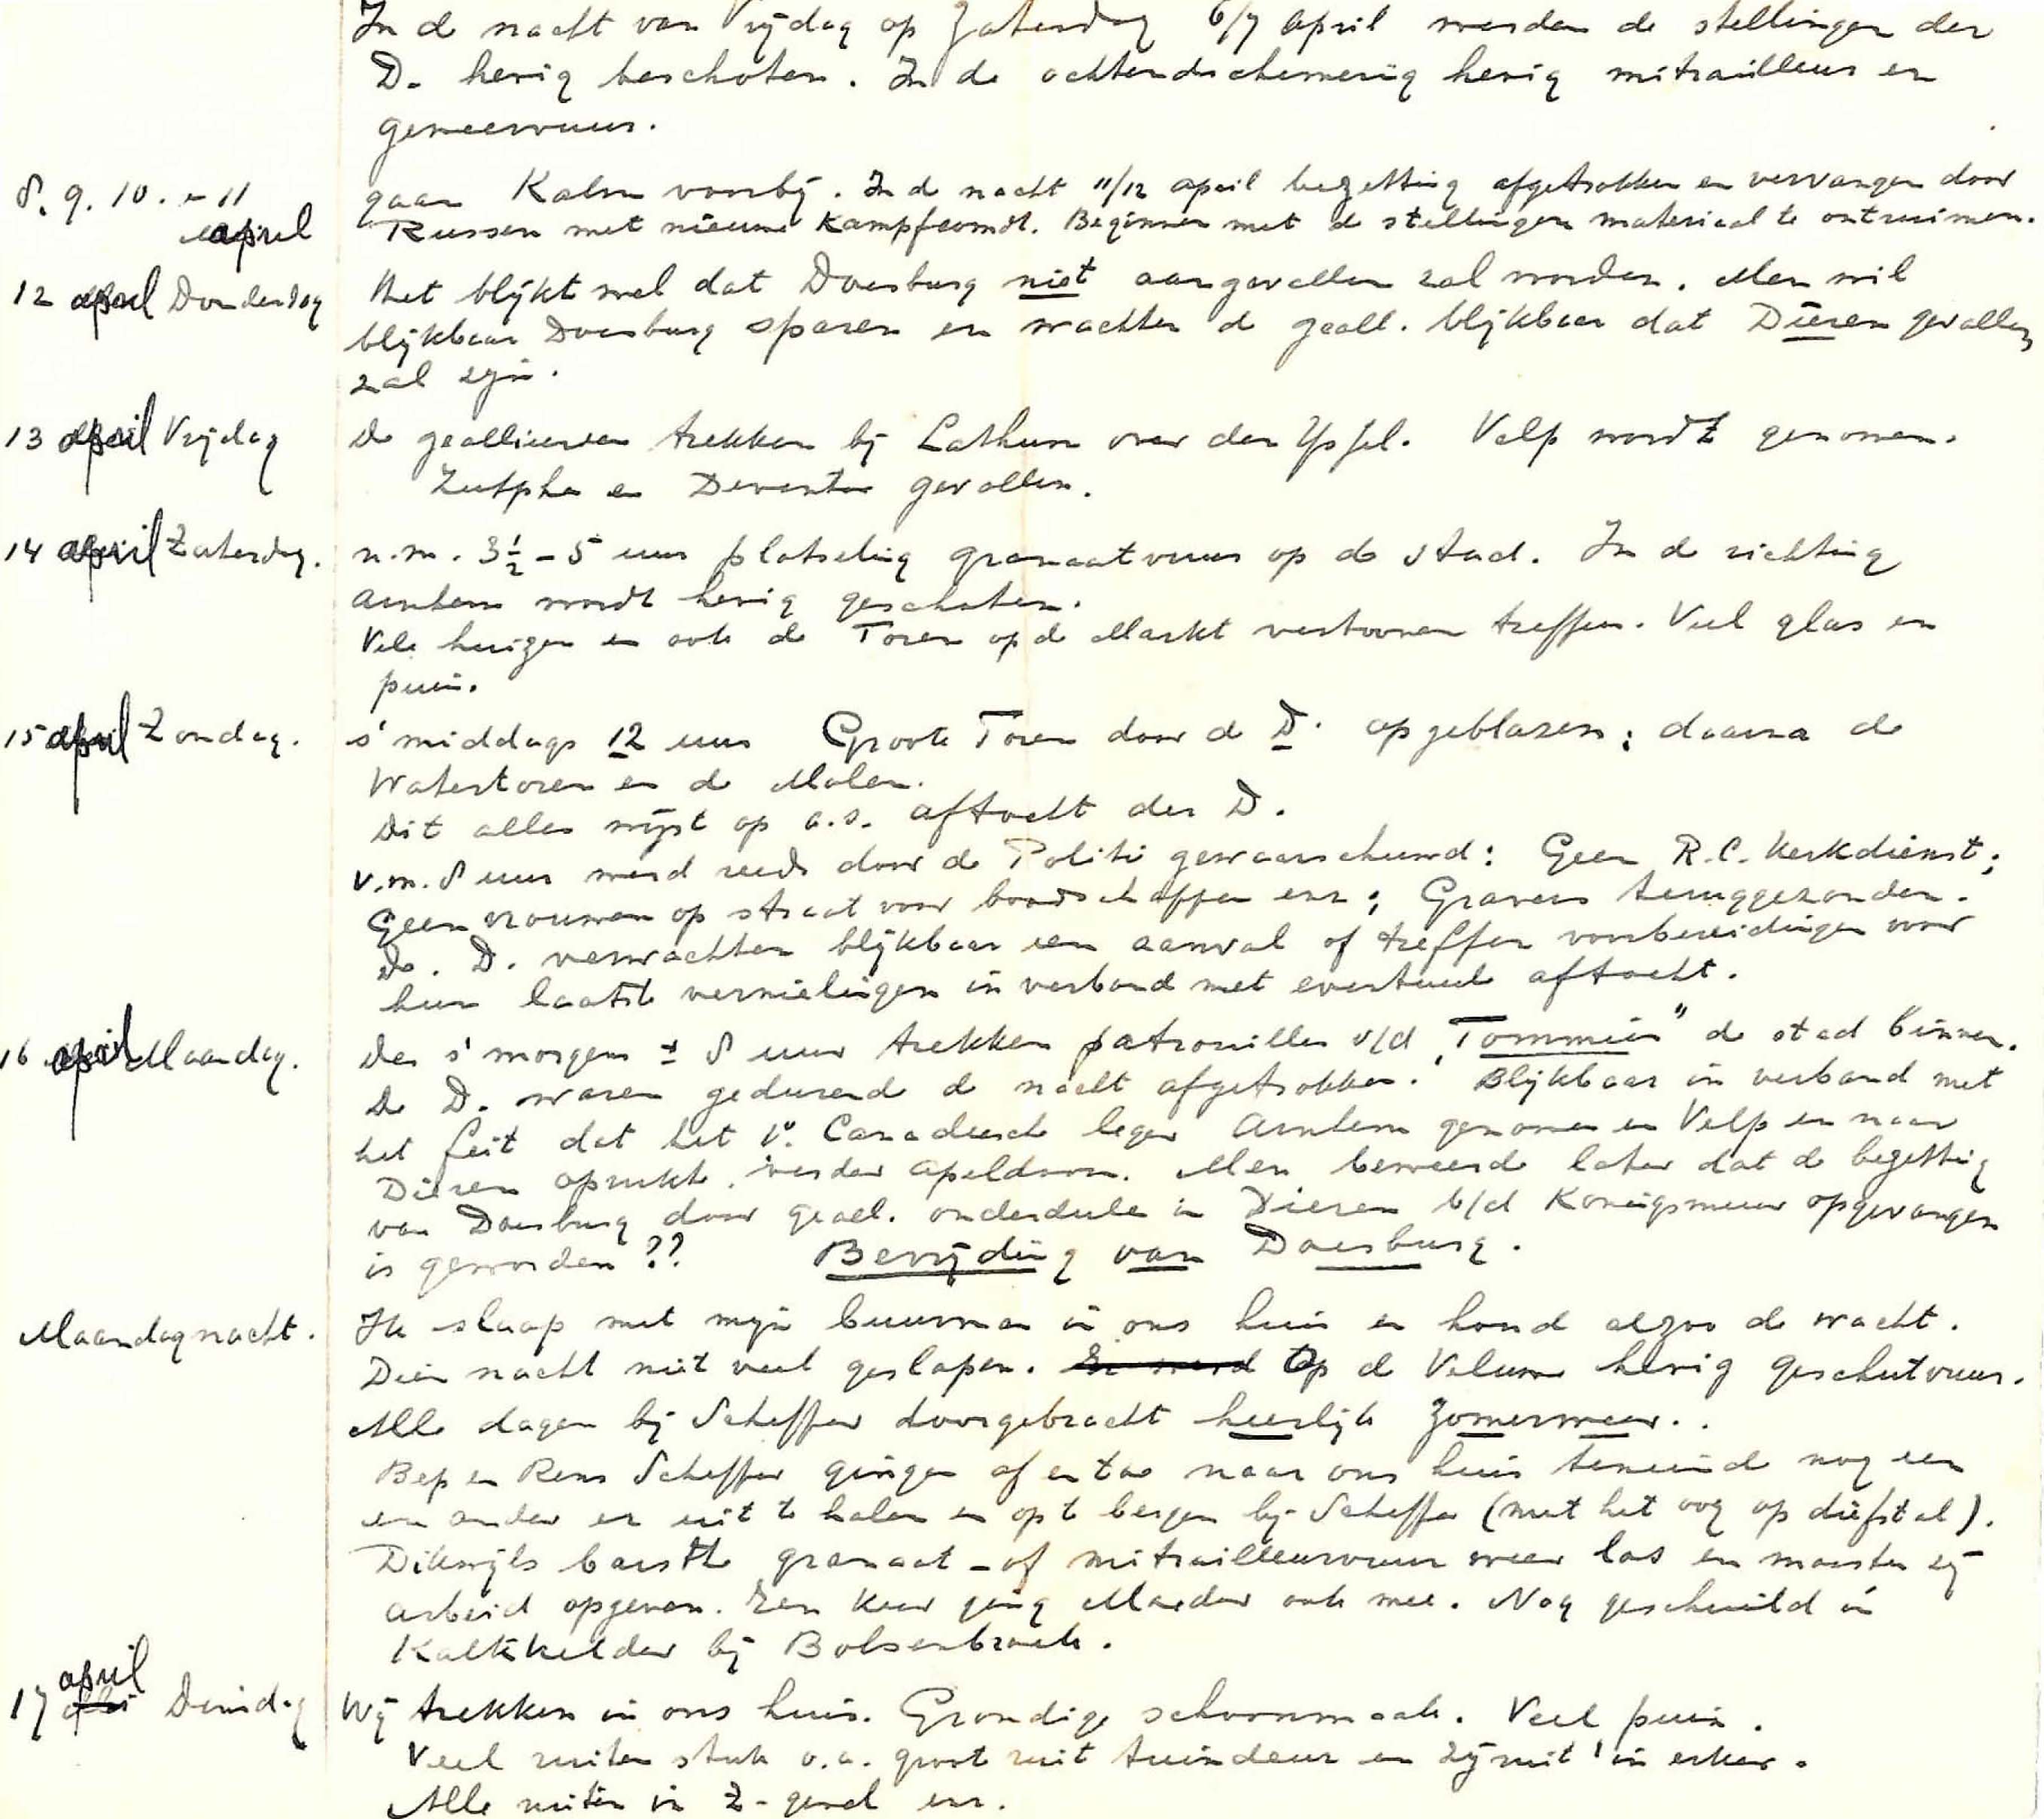 In de nacht van Vrijdag op Zaterdag 6/7 April werden de stellingen der
D. hevig beschoten. In de ochtendschemerig hevig mitrailleur en
geweervuur.
8. 9. 10. en 11 gaan Kalm voorbij. In d nacht 11/12 april bezetting afgetrokken en vervangen door
april Russen met nieuwe Kampfcomdt. Beginnen met de stellingen materiaal te ontruimen.
12 april Donderdag Het blijkt wel dat Doesburg niet aangevallen zal worden. Men wil
blijkbaar Doesburg sparen en wachten de geall. blijkbaar dat Dieren gevallen
zal zijn.
13 april Vrijdag De geallieerden trekken bij Lathum over den Ijssel. Velp wordt genomen.
Zutphen en Deventer gevallen.
14 april Zaterdag. n.m. 3½ - 5 uur plotseling granaatvuur op de stad. In de richting
Arnhem wordt hevig geschoten.
Vele huizen en ook de Toren op de Markt vertoonen treffers. Veel glas en
puin.
15 april Zondag. s' middags 12 uur Groote Toren door de D. opgeblazen; daarna de
Watertoren en de Molen.
Dit alles wijst op a.s. aftocht der D.
v.m. 8 uur werd reeds door de Politie gewaarschuwd: Geen R.C. Kerkdienst;
Geen vrouwen op straat voor boodschappen enz; Gravers teruggezonden.
De. D. verwachten blijkbaar een aanval of treffen voorbereidingen voor
hun laatste vernielingen in verband met eventueele aftocht.
16 april Maandag. Des s' morgens ± 8 uur trekken patrouilles v/d „Tommies" de stad binnen.
De D. waren gedurende de nacht afgetrokken. Blijkbaar in verband met
het feit dat het 1e. Canadeesch leger Arnhem genomen en Velp en naar
Dieren oprukte. verder Apeldoorn. Men beweerde later dat de bezetting
van Doesburg door geall. onderdeelen in Dieren b/d Koningsmuur opgevangen
is geworden ?? Bevrijding van Doesburg.
Maandagnacht. Ik slaap met mijn buurman in ons huis en houd alzoo de wacht.
Dien nacht niet veel geslapen. Er werd Op de Veluwe hevig geschutvuur.
Alle dagen bij Scheffer doorgebracht heerlijk Zomerweer..
Bep en Rens Scheffer gingen af en toe naar ons huis teneinde nog een
en ander er uit te halen en op te bergen bij Scheffer (met het oog op diefstal).
Dikwijls barstte granaat- of mitrailleurvuur weer los en moesten zij
arbeid opgeven. Een keer ging Moeder ook mee. Nog geschuild in
Kalkkelder bij Bolsenbroek.
17 april Dinsdag Wij trekken in ons huis. Grondige schoonmaak. Veel puin.
Veel ruiten stuk o.a. groot ruit tuindeur en zijruit in erker.
Alle ruiten in Z-gevel enz.